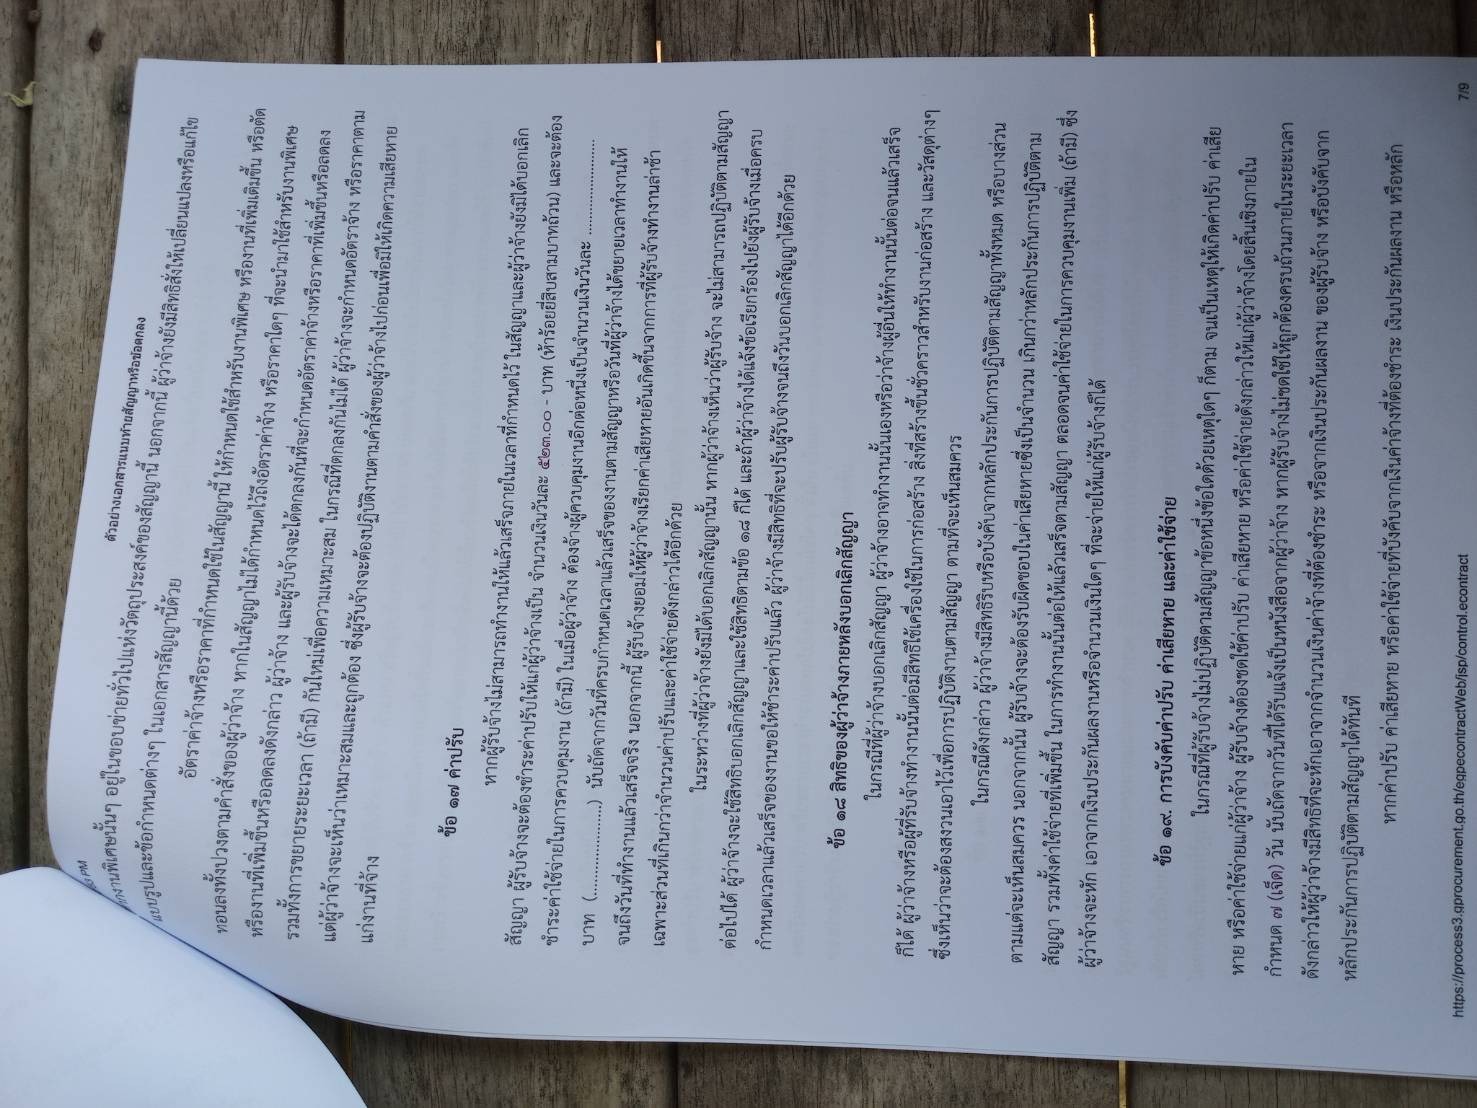 ตัวอย่างเอกสารแนบท้ายสัญญาหรือข้อตกลง
งานพิเศษนั้นๆ อยู่ในขอบข่ายทั่วไปแห่งวัตถุประสงค์ของสัญญานี้ นอกจากนี้ ผู้ว่าจ้างยังมีสิทธิสั่งให้เปลี่ยนแปลงหรือแก้ไข
แบบรูปและข้อกำหนดต่างๆ ในเอกสารสัญญานี้ด้วย
อัตราค่าจ้างหรือราคาที่กำหนดใช้ในสัญญานี้ ให้กำหนดใช้สำหรับงานพิเศษ หรืองานที่เพิ่มเติมขึ้น หรือตัด
ทอนลงทั้งปวงตามคำสั่งของผู้ว่าจ้าง หากในสัญญาไม่ได้กำหนดไว้ถึงอัตราค่าจ้าง หรือราคาใดๆ ที่จะนำมาใช้สำหรับงานพิเศษ
หรืองานที่เพิ่มขึ้นหรือลดลงดังกล่าว ผู้ว่าจ้าง และผู้รับจ้างจะได้ตกลงกันที่จะกำหนดอัตราค่าจ้างหรือราคาที่เพิ่มขึ้นหรือลดลง
รวมทั้งการขยายระยะเวลา (ถ้ามี) กันใหม่เพื่อความเหมาะสม ในกรณีที่ตกลงกันไม่ได้ ผู้ว่าจ้างจะกำหนดอัตราจ้าง หรือราคาตาม
แต่ผู้ว่าจ้างจะเห็นว่าเหมาะสมและถูกต้อง ซึ่งผู้รับจ้างจะต้องปฏิบัติงานตามคำสั่งของผู้ว่าจ้างไปก่อนเพื่อมิให้เกิดความเสียหาย
แก่งานที่จ้าง
ข้อ ๑๗ ค่าปรับ
หากผู้รับจ้างไม่สามารถทำงานให้แล้วเสร็จภายในเวลาที่กำหนดไว้ ในสัญญาและผู้ว่าจ้างยังมิได้บอกเลิก
สัญญา ผู้รับจ้างจะต้องชำระค่าปรับให้แก่ผู้ว่าจ้างเป็น จำนวนเงินวันละ ๕๒๓.๐๐ - บาท (ห้าร้อยยี่สิบสามบาทถ้วน) และจะต้อง
ชำระค่าใช้จ่ายในการควบคุมงาน (ถ้ามี) ในเมื่อผู้ว่าจ้าง ต้องจ้างผู้ควบคุมงานอีกต่อหนึ่งเป็นจำนวนเงินวันละ ....................
บาท (....................) นับถัดจากวันที่ครบกำหนดเวลาแล้วเสร็จของงานตามสัญญาหรือวันที่ผู้ว่าจ้างได้ขยายเวลาทำงานให้
จนถึงวันที่ทำงานแล้วเสร็จจริง นอกจากนี้ ผู้รับจ้างยอมให้ผู้ว่าจ้างเรียกค่าเสียหายอันเกิดขึ้นจากการที่ผู้รับจ้างทำงานล่าช้า
เฉพาะส่วนที่เกินกว่าจำนวนค่าปรับและค่าใช้จ่ายดังกล่าวได้อีกด้วย
ในระหว่างที่ผู้ว่าจ้างยังมิได้บอกเลิกสัญญานั้น หากผู้ว่าจ้างเห็นว่าผู้รับจ้าง จะไม่สามารถปฏิบัติตามสัญญา
ต่อไปได้ ผู้ว่าจ้างจะใช้สิทธิบอกเลิกสัญญาและใช้สิทธิตามข้อ ๑๘ ก็ได้ และถ้าผู้ว่าจ้างได้แจ้งข้อเรียกร้องไปยังผู้รับจ้างเมื่อครบ
กำหนดเวลาแล้วเสร็จของงานขอให้ชำระค่าปรับแล้ว ผู้ว่าจ้างมีสิทธิที่จะปรับผู้รับจ้างจนถึงวันบอกเลิกสัญญาได้อีกด้วย
ข้อ ๑๘ สิทธิของผู้ว่าจ้างภายหลังบอกเลิกสัญญา
ในกรณีที่ผู้ว่าจ้างบอกเลิกสัญญา ผู้ว่าจ้างอาจทำงานนั้นเองหรือว่าจ้างผู้อื่นให้ทำงานนั้นต่อจนแล้วเสร็จ
ก็ได้ ผู้ว่าจ้างหรือผู้ที่รับจ้างทำงานนั้นต่อมีสิทธิใช้เครื่องใช้ในการก่อสร้าง สิ่งที่สร้างขึ้นชั่วคราวสำหรับงานก่อสร้าง และวัสดุต่างๆ
ซึ่งเห็นว่าจะต้องสงวนเอาไว้เพื่อการปฏิบัติงานตามสัญญา ตามที่จะเห็นสมควร
ในกรณีดังกล่าว ผู้ว่าจ้างมีสิทธิริบหรือบังคับจากหลักประกันการปฏิบัติตามสัญญาทั้งหมด หรือบางส่วน
ตามแต่จะเห็นสมควร นอกจากนั้น ผู้รับจ้างจะต้องรับผิดชอบในค่าเสียหายซึ่งเป็นจำนวน เกินกว่าหลักประกันการปฏิบัติตาม
สัญญา รวมทั้งค่าใช้จ่ายที่เพิ่มขึ้น ในการทำงานนั้นต่อให้แล้วเสร็จตามสัญญา ตลอดจนค่าใช้จ่ายในการควบคุมงานเพิ่ม (ถ้ามี) ซึ่ง
ผู้ว่าจ้างจะหัก เอาจากเงินประกันผลงานหรือจำนวนเงินใดๆ ที่จะจ่ายให้แก่ผู้รับจ้างก็ได้
ข้อ ๑๙. การบังคับค่าปรับ ค่าเสียหาย และค่าใช้จ่าย
ในกรณีที่ผู้รับจ้างไม่ปฏิบัติตามสัญญาข้อหนึ่งข้อใดด้วยเหตุใดๆ ก็ตาม จนเป็นเหตุให้เกิดค่าปรับ ค่าเสีย
หาย หรือค่าใช้จ่ายแก่ผู้ว่าจ้าง ผู้รับจ้างต้องชดใช้ค่าปรับ ค่าเสียหาย หรือค่าใช้จ่ายดังกล่าวให้แก่ผู้ว่าจ้างโดยสิ้นเชิงภายใน
กำหนด ๗ (เจ็ด) วัน นับถัดจากวันที่ได้รับแจ้งเป็นหนังสือจากผู้ว่าจ้าง หากผู้รับจ้างไม่ชดใช้ให้ถูกต้องครบถ้วนภายในระยะเวลา
ดังกล่าวให้ผู้ว่าจ้างมีสิทธิที่จะหักเอาจากจำนวนเงินค่าจ้างที่ต้องชำระ หรือจากเงินประกันผลงาน ของผู้รับจ้าง หรือบังคับจาก
หลักประกันการปฏิบัติตามสัญญาได้ทันที
หากค่าปรับ ค่าเสียหาย หรือค่าใช้จ่ายที่บังคับจากเงินค่าจ้างที่ต้องชำระ เงินประกันผลงาน หรือหลัก
https://process3.gprocurement.go.th/egpecontractWeb/jsp/control.econtract 7/9